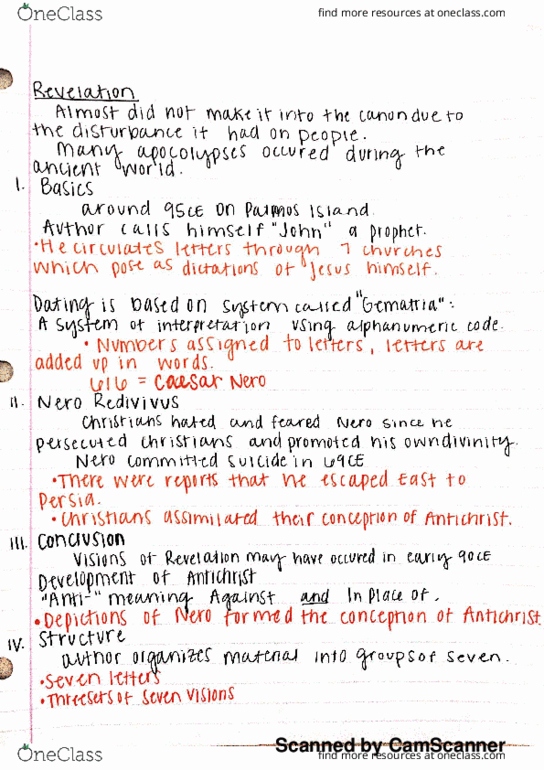 OneClass
find more resources at oneclass.com
Revelation
Almost did not make it into the canon due to
the disturbance it had on people.
Many apocolypses occured during the
ancient world.
I. Basics
around 95CE on Patmos Island.
Author calls himself "John" a prophet.
•He circulates letters through 7 churches
which pose as dictations of Jesus himself.
Dating is based on system called "Gematria":
A system of interpretation using alphanumeric code.
• Numbers assigned to letters, letters are
added up in words.
616 = Caesar Nero
II. Nero Redivivus
Christians hated and feared Nero since he
persecuted christians and promoted his own divinity.
Nero committed suicide in 69CE
•There were reports that he escaped East to
Persia.
•Christians assimilated their conception of Antichrist.
III. Conclusion
Visions of Revelation may have occured in early 90CE
Development of Antichrist
"Anti-" meaning Against and In Place of.
•Depictions of Nero formed the conception of Antichrist
IV. Structure
author organizes material into groups of seven.
•Seven letters
•Three sets of seven visions
Scanned by CamScanner
OneClass
find more resources at oneclass.com